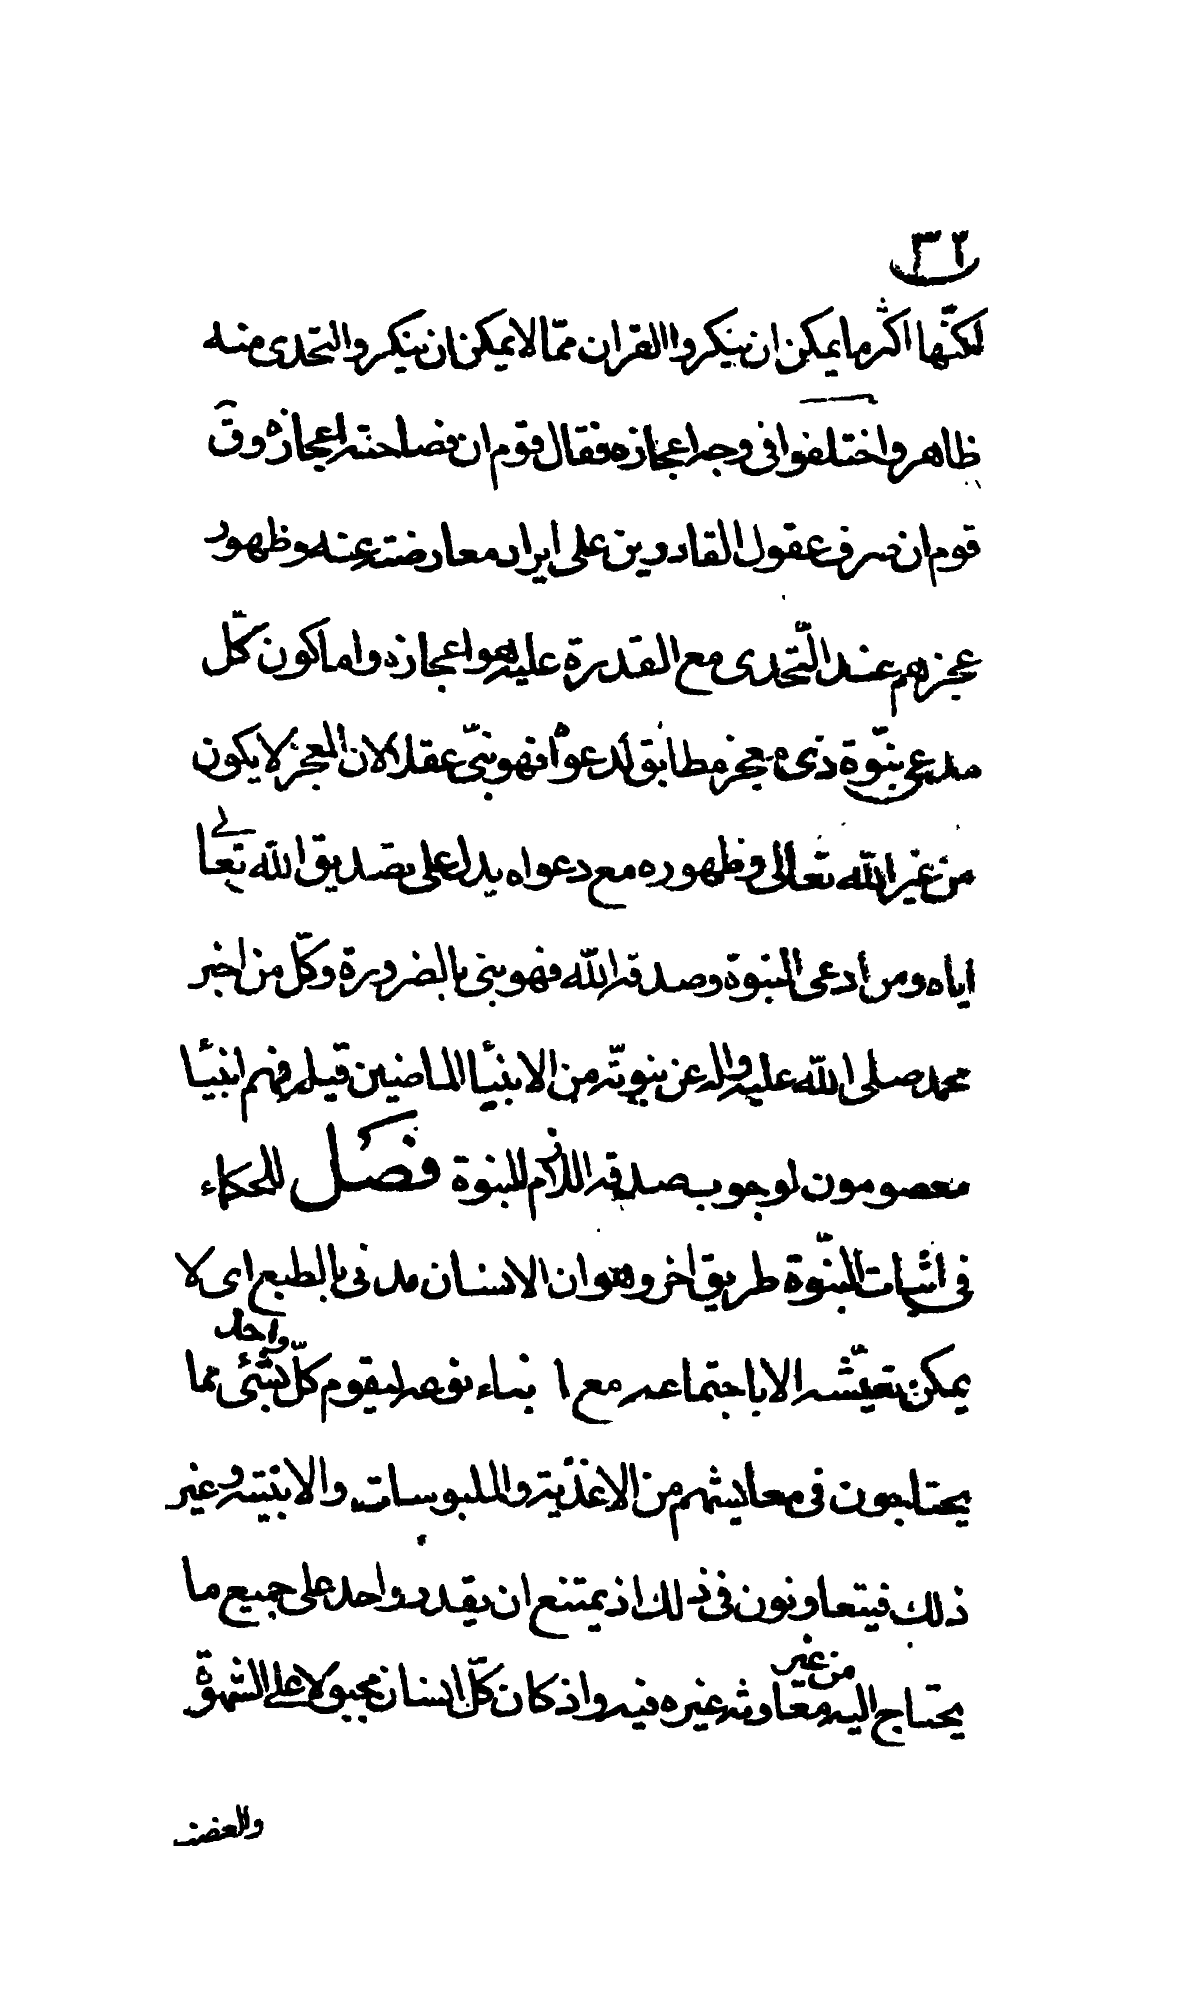 ٣٢
لكنّها اكثر ما يمكن ان ينكروا القران ممّا لا يمكن ان ينكر والتحدى منه
ظاهر واختلفوا فى وجه اعجازه فقال قوم ان فصاحته اعجازه وق
قوم ان صرف عقول القادرين على ايراد معارضته عنه وظهور
عجزهم عند التّحدى مع القدرة عليه هو اعجازه واما كون كلّ
مدعى نبّوة ذى معجز مطابق لدعواه فهو نبىّ عقلا لان المعجز لا يكون
من غير الله تعالى وظهوره مع دعواه يدل على تصديق الله تعالى
اياه ومن أدعى النبوة وصدقه الله فهو نبى بالضرورة وكلّ من اخبر
محمد صلى الله عليه واله عن نبوتّه من الانبيأ الماضين قبله فهم انبيأ
معصومون لوجوب صدقه اللازم للنبوة فصل للحكاء
فى اثبات النبّوة طريق اخر وهو ان الانسان مدنى بالطبع اى لا
يمكن تعيّشه الا باجتماعه مع ا بناء نوعه ليقوم كلّ واحد بشئى مما
يحتاجون فى معايشهم من الاغذية والملبوسات والابنية وغير
ذلك فيتعاونون فى ذلك اذ يمتنع ان يقدر واحد على جميع ما
يحتاج اليه من غير معاونة غيره فيه واذ كان كلّ انسان مجبولا على الشهوة
والغضب